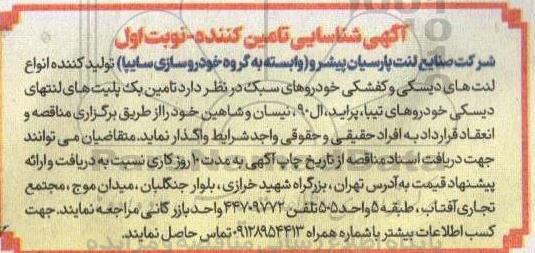 آگهی شناسایی تامین کننده-نوبت اول
شرکت صنایع لنت پارسیان پیشرو (وابسته به گروه خودروسازی سایپا) تولید کننده انواع
لنت های دیسکی و کفشکی خودروهای سبک در نظر دارد تامین بک پلیت های لنتهای
دیسکی خودروهای تیبا، پراید، ال۹۰، نیسان و شاهین خود را از طریق برگزاری مناقصه و
انعقاد قرارداد به افراد حقیقی و حقوقی واجد شرایط واگذار نماید. متقاضیان می توانند
جهت دریافت اسناد مناقصه از تاریخ چاپ آگهی به مدت ۱۰ روز کاری نسبت به دریافت و ارائه
پیشنهاد قیمت به آدرس تهران، بزرگراه شهید خرازی، بلوار جنگلبان، میدان موج، مجتمع
تجاری آفتاب، طبقه ۵ واحد ۵۰۵ تلفن ۴۴۷۰۹۷۷۲ واحد بازرگانی مراجعه نمایند. جهت
کسب اطلاعات بیشتر با شماره همراه ۰۹۱۲۸۹۵۴۴۱۳ تماس حاصل نمایند.